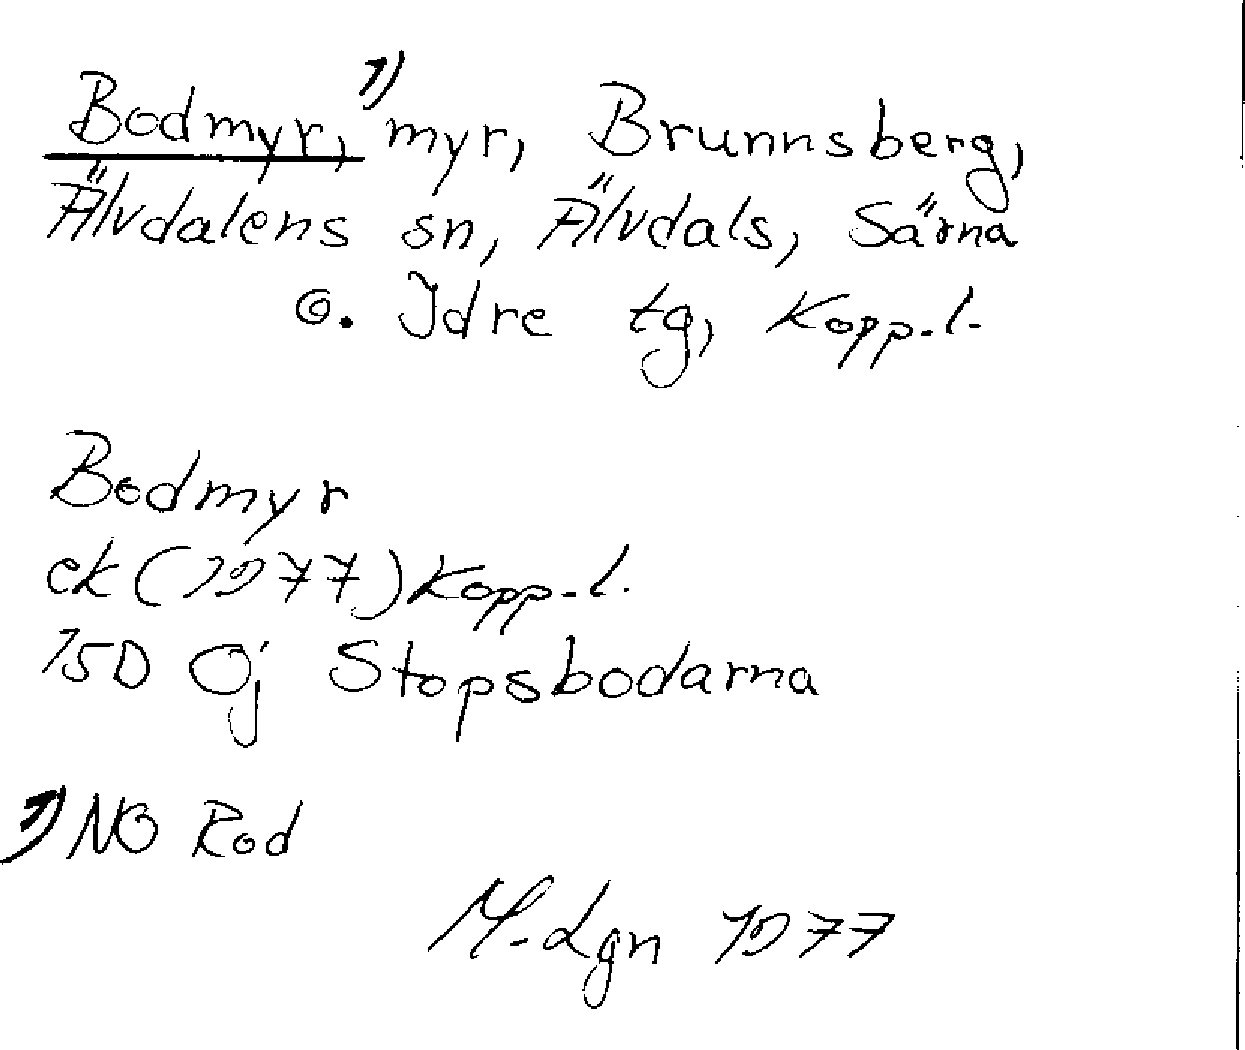 Bodmyr,¹⁾ myr, Brunnsberg,
Älvdalens sn, Älvdals, Särna
o. Idre tg, Kopp.l.
Bodmyr
ek (1977) Kopp.l.
15D 0j Stopsbodarna
1) NO Rod
M-Lgn 1977